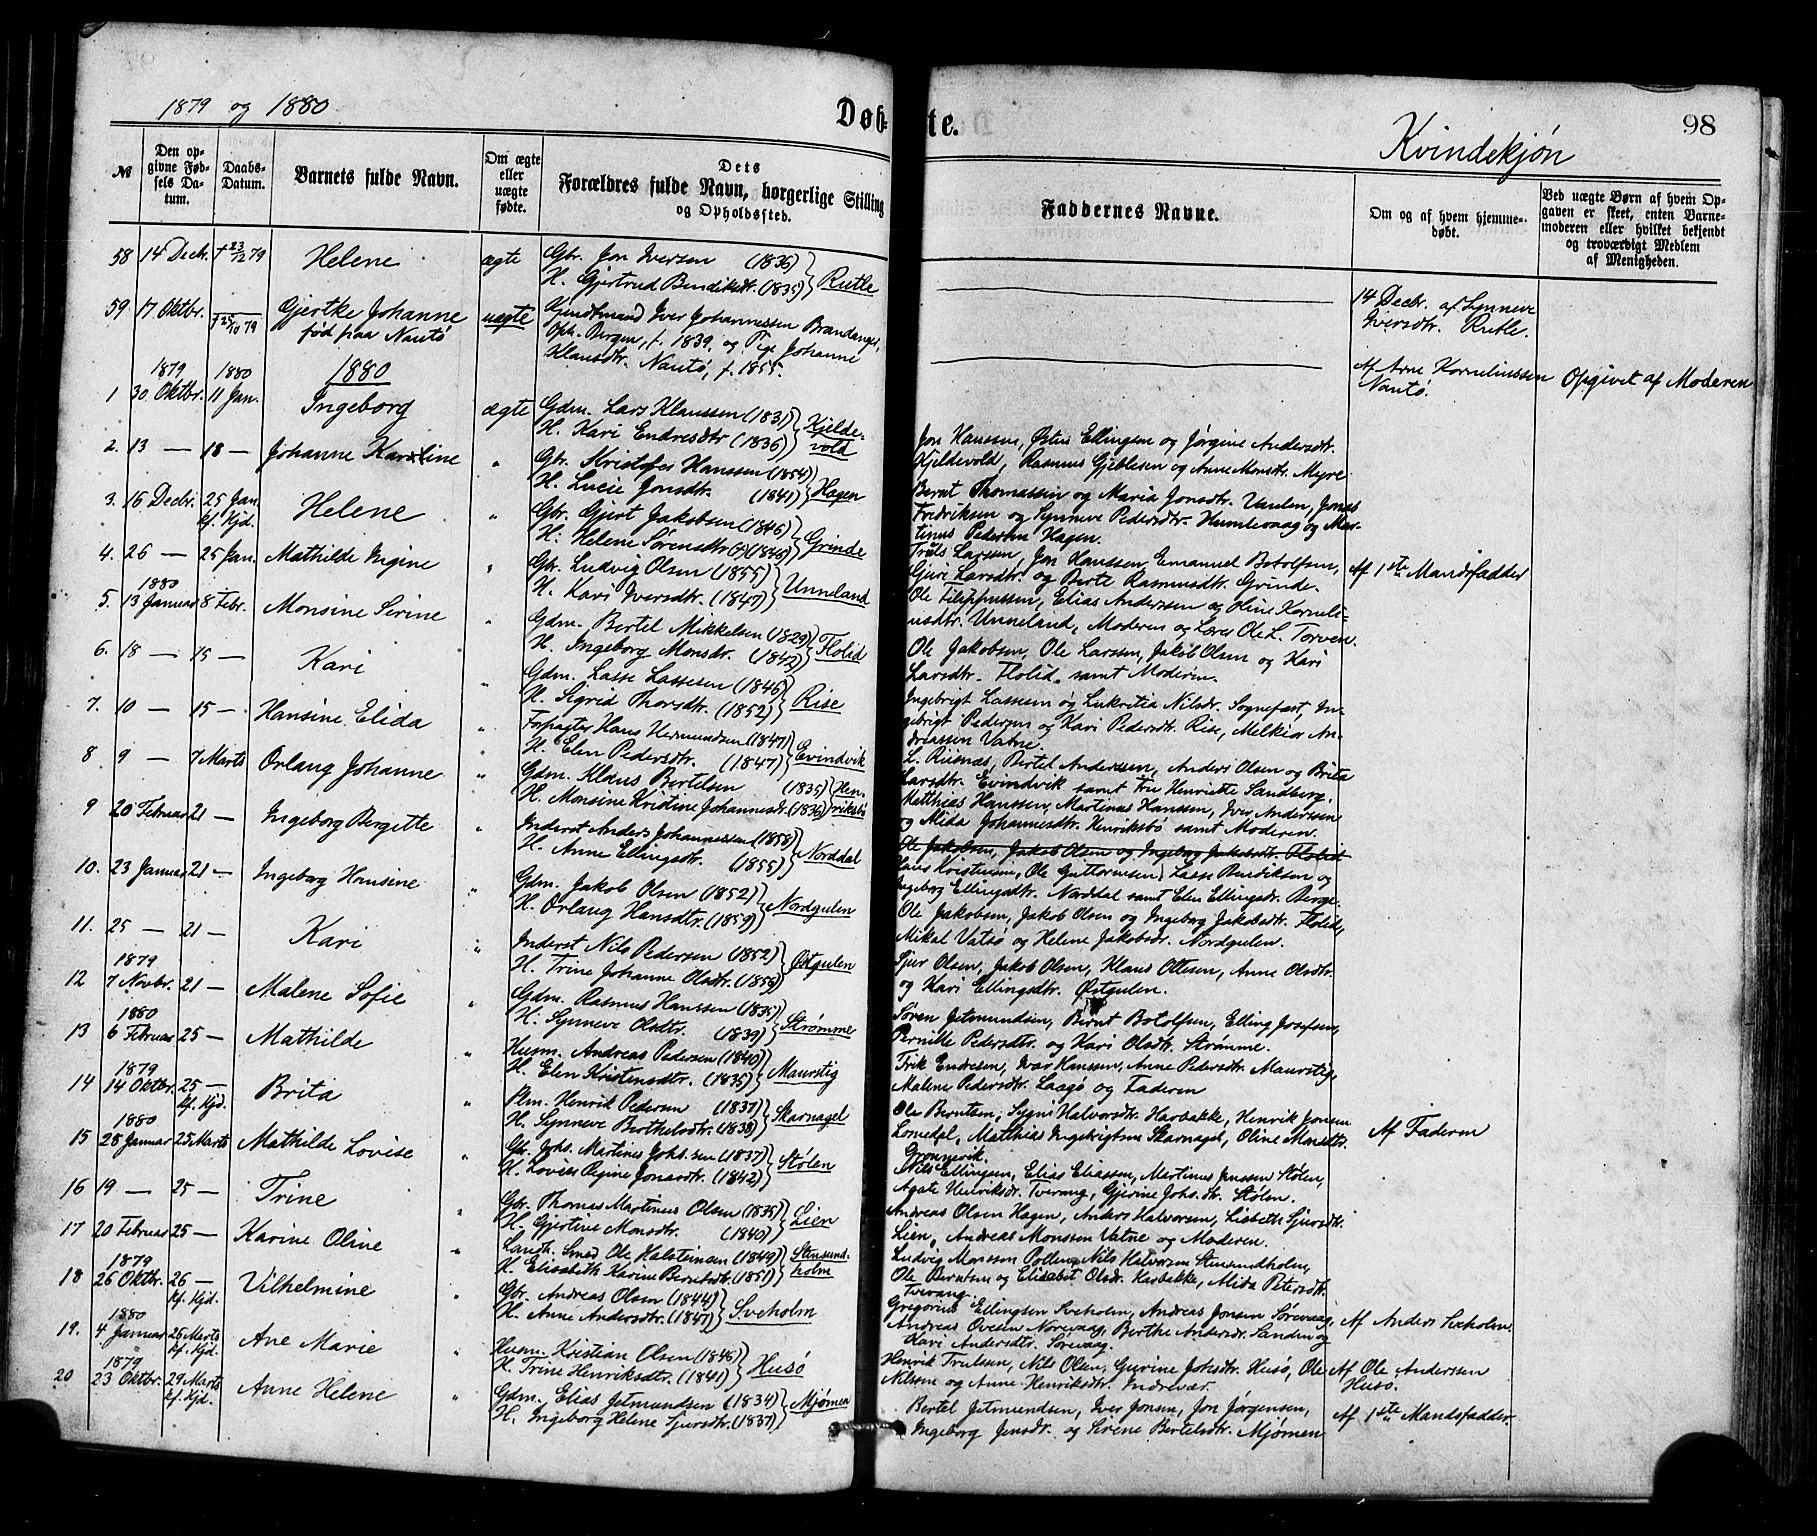 1879 og 1880
Døbte.
Kvindekjön
98
№
Den opgivne Fødsels Datum.
Daabs-Datum.
Barnets fulde Navn.
Om ægte eller uægte fødte.
Dets Forældres fulde Navn, borgerlige Stilling og Opholdssted.
Faddernes Navne.
Om og af hvem hjemmedøbt.
Ved uægte Børn af hvem Opgaven er skeet, enten Barnemoderen eller hvilket bekjendt og troværdigt Medlem af Menigheden.
58 14 Decbr. † 23/12 79 Helene ægte Gbr. Jon Iversen (1836)
H. Gjertrud Bendiksdt. (1835) Rutle
14 Decbr. af Synneve
Iversdtr. Rutle.
59 17 Oktbr. † 25/10 79 Gjertke Johanne uægte Gjendtmand Iver Johannessen Brandanger,
fød paa Nautö Oph. Bergen, f. 1839, og Pige Johanne
Klausdtr. Nautö, f. 1855.
Af Arne Kornelinssen Opgivet af Moderen
Nautö.
1879 1880 1880
1 30 Oktbr. 11 Jan. Ingeborg ægte Gdm. Lars Klaussen (1831)
H. Kari Endresdtr (1836) Kjeldevold
Jon Hanssen, Østen Ellingsen og Jørgine Andersdtr.
Kjeldevold, Rasmus Gjeblesen og Anne Monsdtr. Myre
2. 13 — 18 — Johanne Karoline " Gbr. Kristofer Hanssen (1854)
H. Lucie Jonsdtr. (1841) Hagen
Bernt Thomassen og Maria Jonsdtr. Vaulen, Jonas
Fredriksen og Synneve Pedersdtr. Humlevaag og Martinus
Pedersen Hagen.
3. 16 Decbr. 25 Jan. kf. Kjd. Helene " Gbr. Gjert Jakobsen (1846)
H. Helene Sørensdtr (1838) Grinde
Truls Larsen, Jon Hanssen, Emanuel Botolfsen,
Guri Larsdtr. og Berte Rasmusdtr. Grinde.
Af 1ste Mandsfadder
4. 26 — 25 Jan. Mathilde Ingine " Gbr. Ludvig Olsen (1855)
H. Kari Iversdtr. (1847) Unneland
Ole Filippussen, Elias Anderssen og Oline Korneliusdtr.
Unneland, Moderen og Lærer Ole L. Torven.
1880
5. 13 Januar 8 Febr. Monsine Serine " Gdm. Bertel Mikkelsen (1829)
H. Ingeborg Monsdr. (1842) Flolid
Ole Jakobsen, Ole Larssen, Jakob Olsen og Kari
Larsdtr. Flolid samt Moderen.
6. 18 — 15 — Kari " Gdm. Lasse Lassesen (1846)
H. Sigrid Thorsdtr. (1852) Rise
Ingebrigt Lassesen og Lukretia Nilsdr. Sognefæst, Ingebrigt
Pedersen og Kari Pedersdtr. Rise, Melkior Andriassen
Vatne.
7. 10 — 15 — Hansine Elida " Forpagter Hans Hermundsen (1847)
H. Elen Pedersdtr. (1847) Evindvik
L. Risnæs, Bertel Anderssen, Anders Olsen og Brita
Larsdtr. Evindvik samt Fru Henriette Sandberg.
8 9 — 7 Marts Orlaug Johanne " Gdm. Klaus Bertelsen (1835)
H. Monsine Kristine Johannesdt. (1836) Henriksbö
Matthias Hanssen, Martinus Hanssen, Iver Anderssen
og Alida Johannesdtr. Henriksbö samt Moderen.
Ole Jakobsen, Jakob Olsen og Ingeborg Jakobsdtr. Flolid
9 20 Februar 21 — Ingeborg Bergitte " Inderst Anders Johannessen (1858)
H. Anne Ellingsdtr. (1855) Norddal
Lars Kristensen, Ole Guttormsen, Lasse Bendiksen og
Ingeborg Ellingsdtr. Norddal samt Elen Ellingsdr. Berge.
10. 23 Januar 21 — Ingeborg Hansine " Gdm. Jakob Olsen (1852)
H. Orlaug Hansdtr. (1859) Nordgulen
Ole Jakobsen, Jakob Olsen og Ingeborg Jakobsdtr. Flolid,
Mikal Vatsö og Helene Jakobsdr. Nordgulen.
11. 25 — 21 — Kari " Inderst Nils Pedersen (1852)
H. Trine Johanne Olsdtr. (1858) Østgulen
Sjur Olsen, Jakob Olsen, Klaus Ottesen, Anne Olsdtr.
og Kari Ellingsdtr. Østgulen.
1879
12 7 Novbr. 21 — Malene Sofie " Gdm. Rasmus Hanssen (1835)
H. Synneve Olsdtr. (1839) Strømme
Søren Jetmundsen, Bernt Botolfsen, Elling Josefsen,
Pernille Pedersdtr. og Kari Olsdtr. Strömme.
1880
13 6 Februar 25 — Mathilde " Husm. Andreas Pedersen (1840)
H. Elen Kristensdtr. (1835) Maurstig
Erik Endresen, Ivar Hanssen, Anne Pedersdtr. Maurstig,
Malene Pedersdtr. Laagö og Faderen
1879
14 14 Oktbr. 25 — kf. Kjd. Brita " Plm. Henrik Pedersen (1837)
H. Synneve Berthelsdtr. (1838) Skarnagel
Ole Berntsen, Sygni Halvorsdtr. Harbakke, Henrik Jonsen
Lomedal, Matthias Ingebrigtsen Skarnagel, Oline Monsdtr.
Grønnevik.
Af Faderen
1880
15 28 Januar 25 Marts Mathilde Lovise " Gbr. Johs. Martines Johs.sen (1837)
H. Lovise Regine Jonasdtr. (1842) Stølen
Nils Ellingsen, Elias Eliassen, Martinus Jenssen Stølen,
Agate Henriksdr. Tverang, Gjerine Johs.dr. Stølen.
16 19 — 25 — Trine " Gbr. Thomas Martinus Olsen (1835)
H. Gjertine Monsdtr. (1840) Lien
Andreas Olsen Hagen, Anders Halvorsen, Lisbeth Sjursdtr.
Lien, Andreas Monssen Vatne og Moderen.
17 20 Februar 25 — Karine Oline " Landh. Smed Ole Halsteinsen (1849)
H. Elisabeth Karine Berntsdtr. (1851) Stensundholm
Ludvig Monssen Pollen, Nils Halvorsen Stensundholm,
Ole Berntsen og Elisabet Olsdr. Harbakke, Alida Petersdtr.
Tverang.
1879
18 26 Oktbr. 26 — kf. Kjd. Vilhelmine " Gbr. Andreas Olsen (1844)
H. Anne Andersdtr. (1847) Sveholm
Gregorius Ellingsen Sveholm, Andreas Jonsen Sørevaag,
Andreas Ovesen Norevaag, Berthe Andersdr. Sanden og
Kari Andersdtr. Sörevaag.
Af Anders Sveholm.
1880
19. 4 Januar 26 Marts kf. Kjd. Ane Marie " Husm. Kristian Olsen (1846)
H. Trine Henriksdtr. (1841) Husö
Henrik Trulssen, Nils Olsen, Gurine Johsdtr. Husö, Ole
Nilssen og Anne Henriksdtr. Indrevær.
Af Ole Anderssen
Husö.
1879
20 23 Oktbr. 29 Marts kf. Kjd. Anne Helene " Gdm. Elias Jetmundsen (1834)
H. Ingeborg Helene Sjursdtr. (1837) Mjømen
Bertel Jetmundsen, Iver Jonsen, Jon Jørgensen,
Ingeborg Jensdr. og Sirene Bertelsdtr. Mjømen
Af 1ste Mandsfadder